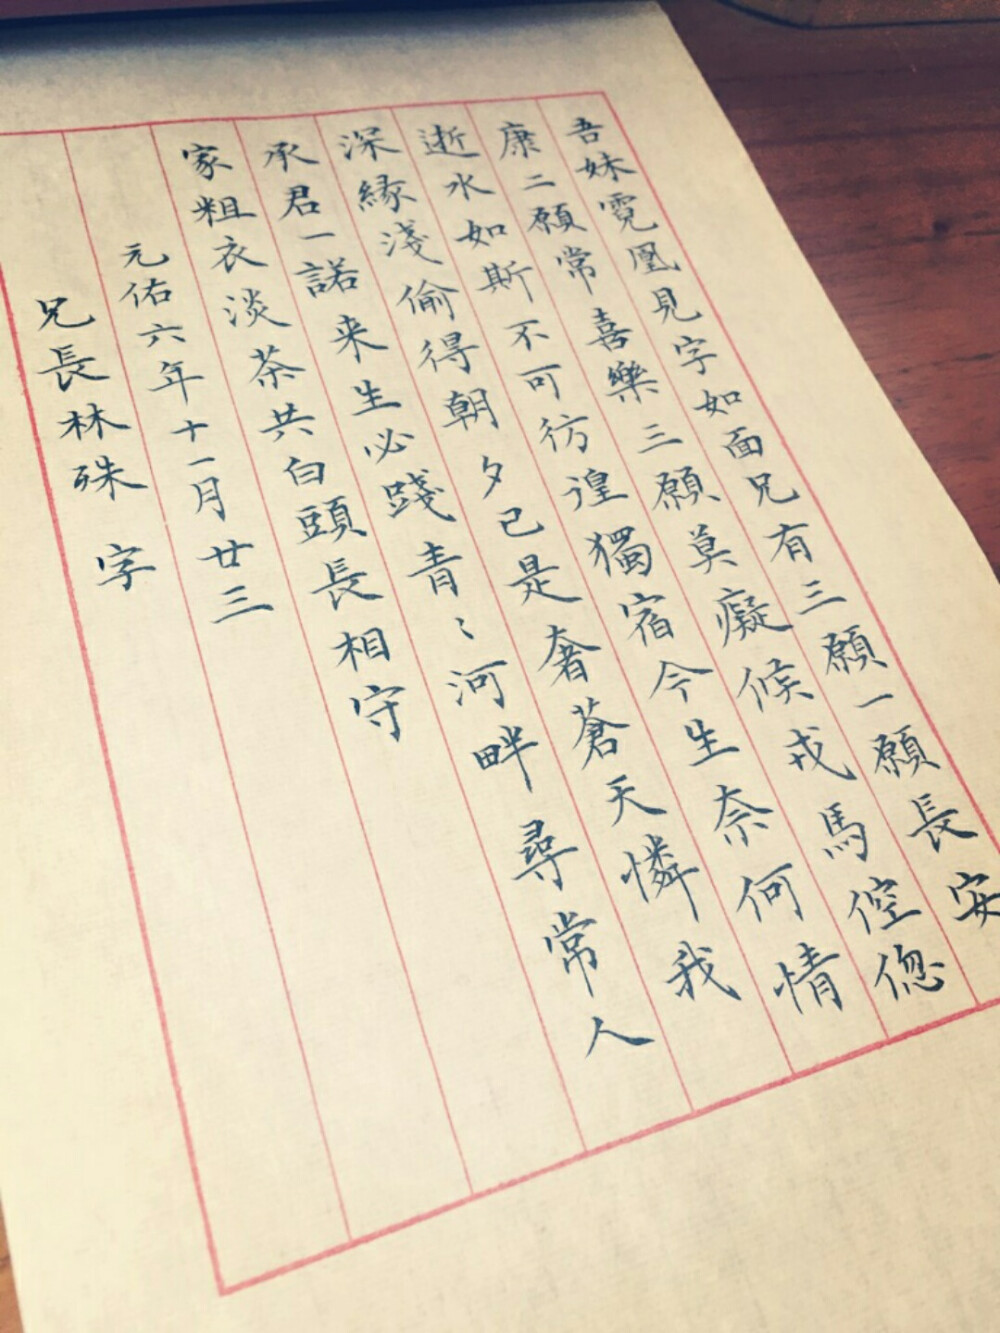 吾妹霓凰見字如面兄有三願一願長安
康二願常喜樂三願莫癡候戎馬倥偬
逝水如斯不可彷徨獨宿今生奈何情
深緣淺偷得朝夕已是奢蒼天憐我
承君一諾来生必踐青〻河畔尋常人
家粗衣淡茶共白頭長相守
元佑六年十一月廿三
兄長林殊 字